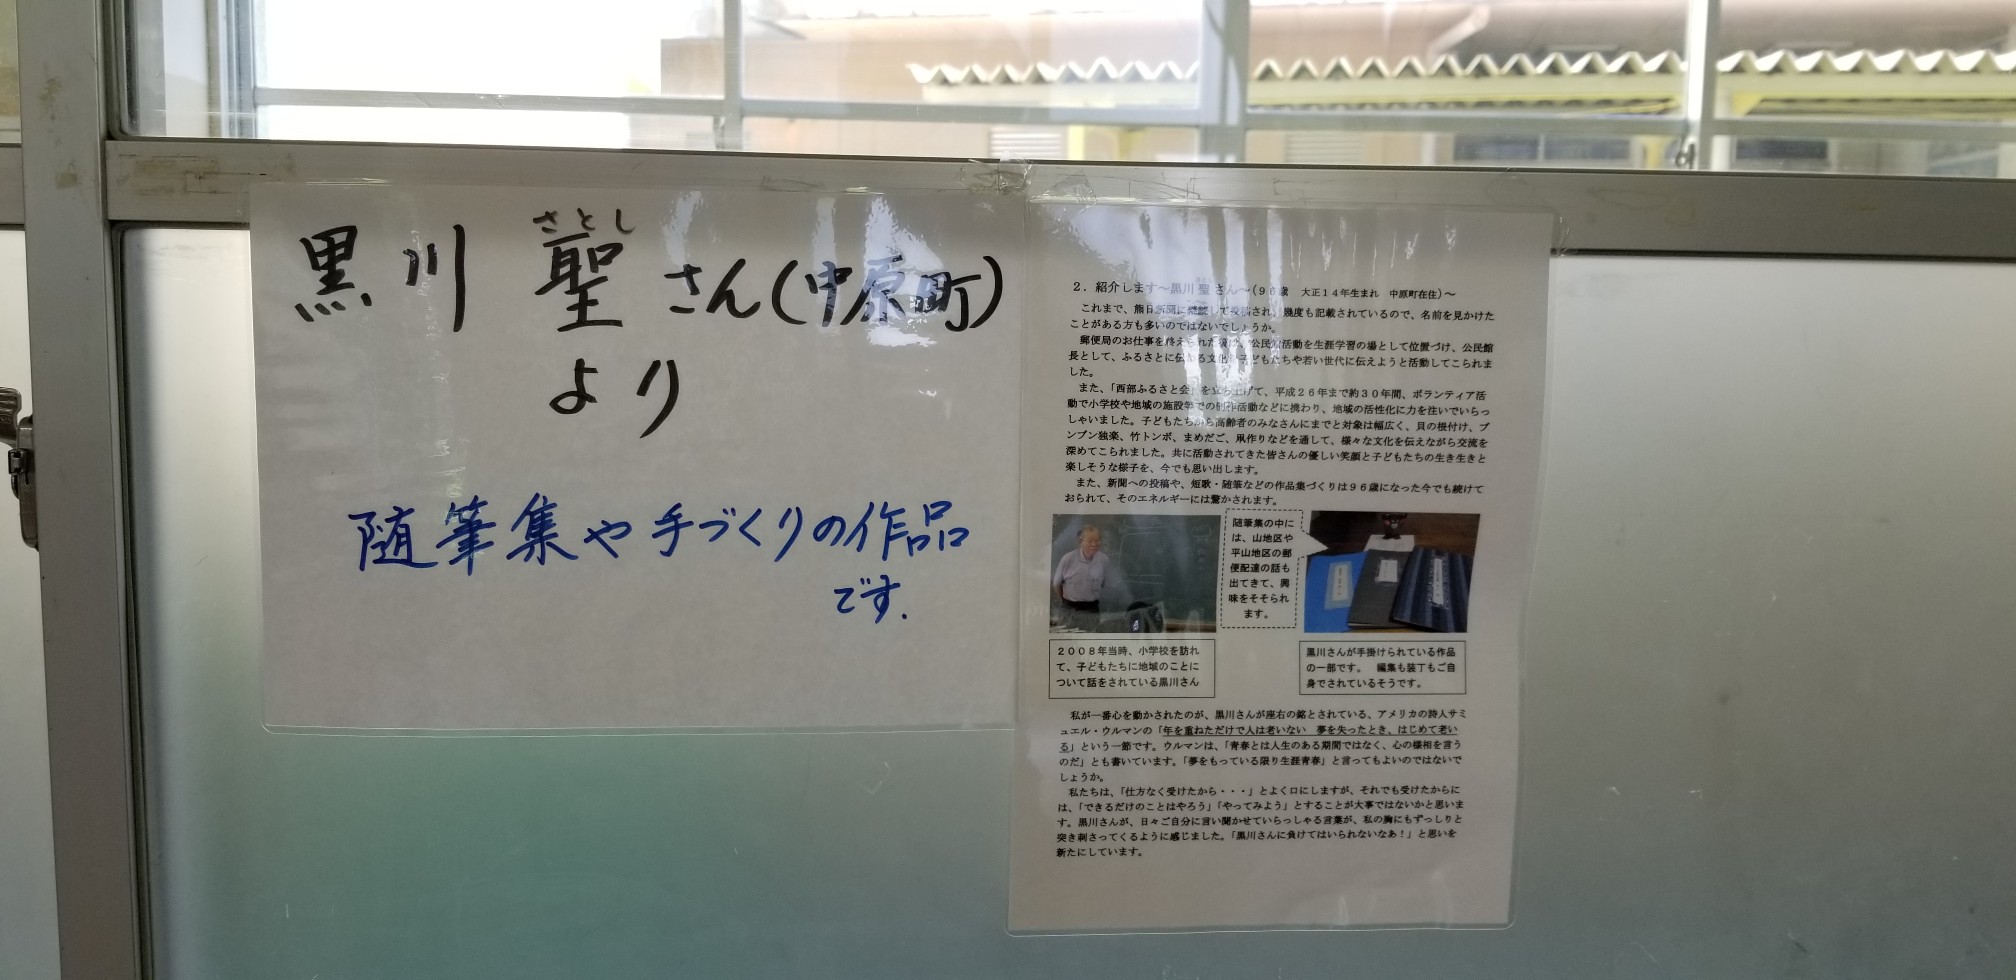 さとし
黒川 聖 さん(中原町)
より
随筆集や手づくりの作品
です.
２．紹介します～黒川 聖 さん～（９６歳　大正１４年生まれ　中原町在住）～
これまで、熊日新聞に継続して投稿され、幾度も記載されているので、名前を見かけた
ことがある方も多いのではないでしょうか。
郵便局のお仕事を終えられた後は、公民館活動を生涯学習の場として位置づけ、公民館
長として、ふるさとに伝わる文化を子どもたちや若い世代に伝えようと活動してこられま
した。
また、「西部ふるさと会」を立ち上げて、平成２６年まで約３０年間、ボランティア活
動で小学校や地域の施設等での制作活動などに携わり、地域の活性化に力を注いでいらっ
しゃいました。子どもたちから高齢者のみなさんにまでと対象は幅広く、貝の根付け、ブ
ンブン独楽、竹トンボ、まめだご、凧作りなどを通して、様々な文化を伝えながら交流を
深めてこられました。共に活動されてきた皆さんの優しい笑顔と子どもたちの生き生きと
楽しそうな様子を、今でも思い出します。
また、新聞への投稿や、短歌・随筆などの作品集づくりは９６歳になった今でも続けて
おられて、そのエネルギーには驚かされます。
随筆集の中に
は、山地区や
平山地区の郵
便配達の話も
出てきて、興
味をそそられ
ます。
２００８年当時、小学校を訪れ
て、子どもたちに地域のことに
ついて話をされている黒川さん
黒川さんが手掛けられている作品
の一部です。　編集も装丁もご自
身でされているそうです。
私が一番心を動かされたのが、黒川さんが座右の銘とされている、アメリカの詩人サミ
ュエル・ウルマンの「年を重ねただけで人は老いない　夢を失ったとき、はじめて老い
る」という一節です。ウルマンは、「青春とは人生のある期間ではなく、心の様相を言う
のだ」とも書いています。「夢をもっている限り生涯青春」と言ってもよいのではないで
しょうか。
私たちは、「仕方なく受けたから・・・」とよく口にしますが、それでも受けたからに
は、「できるだけのことはやろう」「やってみよう」とすることが大事ではないかと思いま
す。黒川さんが、日々ご自分に言い聞かせていらっしゃる言葉が、私の胸にもずっしりと
突き刺さってくるように感じました。「黒川さんに負けてはいられないなあ！」と思いを
新たにしています。